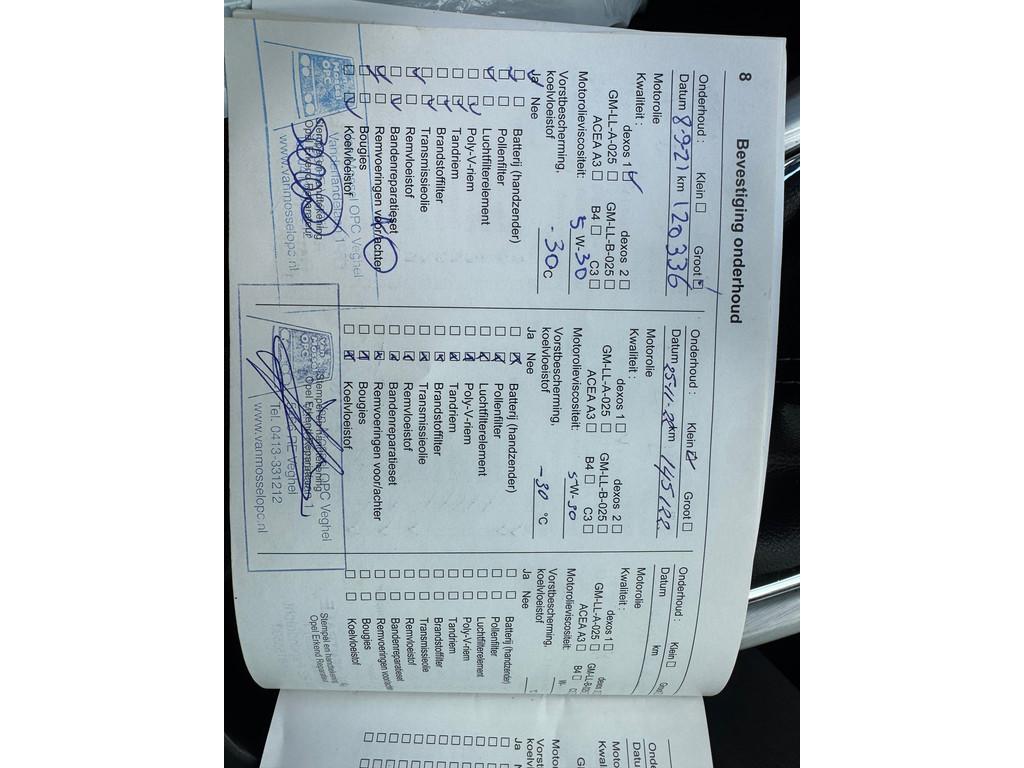 8 Bevestiging onderhoud
Onderhoud : Klein Groot
Datum 8-9-21 km 120336
Motorolie
Kwaliteit : dexos 1 dexos 2
GM-LL-A-025 GM-LL-B-025
ACEA A3 B4 C3
Motorolieviscositeit: 5 W-30
Vorstbescherming,
koelvloeistof -30 °C
Ja Nee
Batterij (handzender)
Pollenfilter
Luchtfilterelement
Poly-V-riem
Tandriem
Brandstoffilter
Transmissieolie
Remvloeistof
Bandenreparatieset
Remvoeringen voor/achter
Bougies
Koelvloeistof
OPC Veghel
Stempel en handtekening
Opel Erkend Reparateur
www.vanmosselopc.nl
Onderhoud : Klein Groot
Datum 25-11-22 km 145122
Motorolie
Kwaliteit : dexos 1 dexos 2
GM-LL-A-025 GM-LL-B-025
ACEA A3 B4 C3
Motorolieviscositeit: 5W-30
Vorstbescherming,
koelvloeistof -30 °C
Ja Nee
Batterij (handzender)
Pollenfilter
Luchtfilterelement
Poly-V-riem
Tandriem
Brandstoffilter
Transmissieolie
Remvloeistof
Bandenreparatieset
Remvoeringen voor/achter
Bougies
Koelvloeistof
OPC Veghel
Stempel en handtekening
Opel Erkend Reparateur
Veghel
Tel. 0413-331212
www.vanmosselopc.nl
Onderhoud : Klein
Datum km
Motorolie
Kwaliteit : dexos 1
GM-LL-A-025 GM-LL-B-025
ACEA A3 B4
Motorolieviscositeit: W-
Vorstbescherming,
koelvloeistof
Ja Nee
Batterij (handzender)
Pollenfilter
Luchtfilterelement
Poly-V-riem
Tandriem
Brandstoffilter
Transmissieolie
Remvloeistof
Bandenreparatieset
Remvoeringen voor/achter
Bougies
Koelvloeistof
Stempel en handtekening
Opel Erkend Reparateur